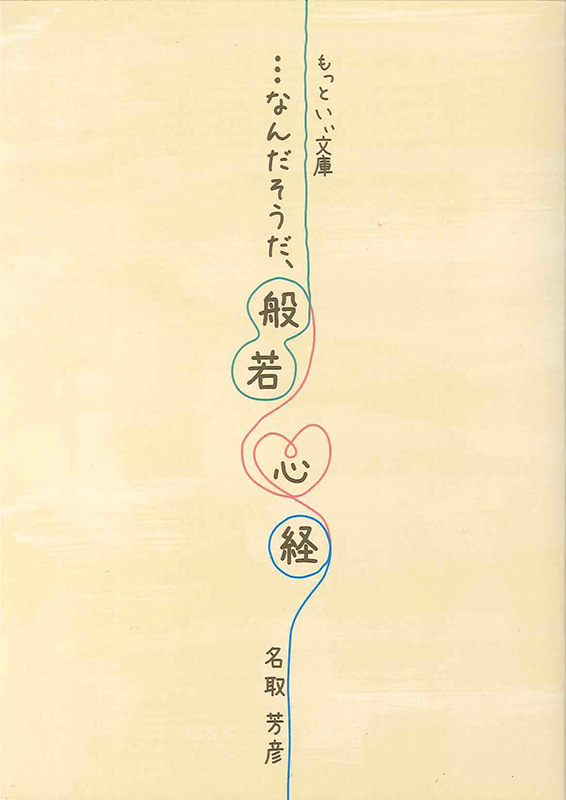 もっといい文庫
…なんだそうだ、般若心経
名取芳彦